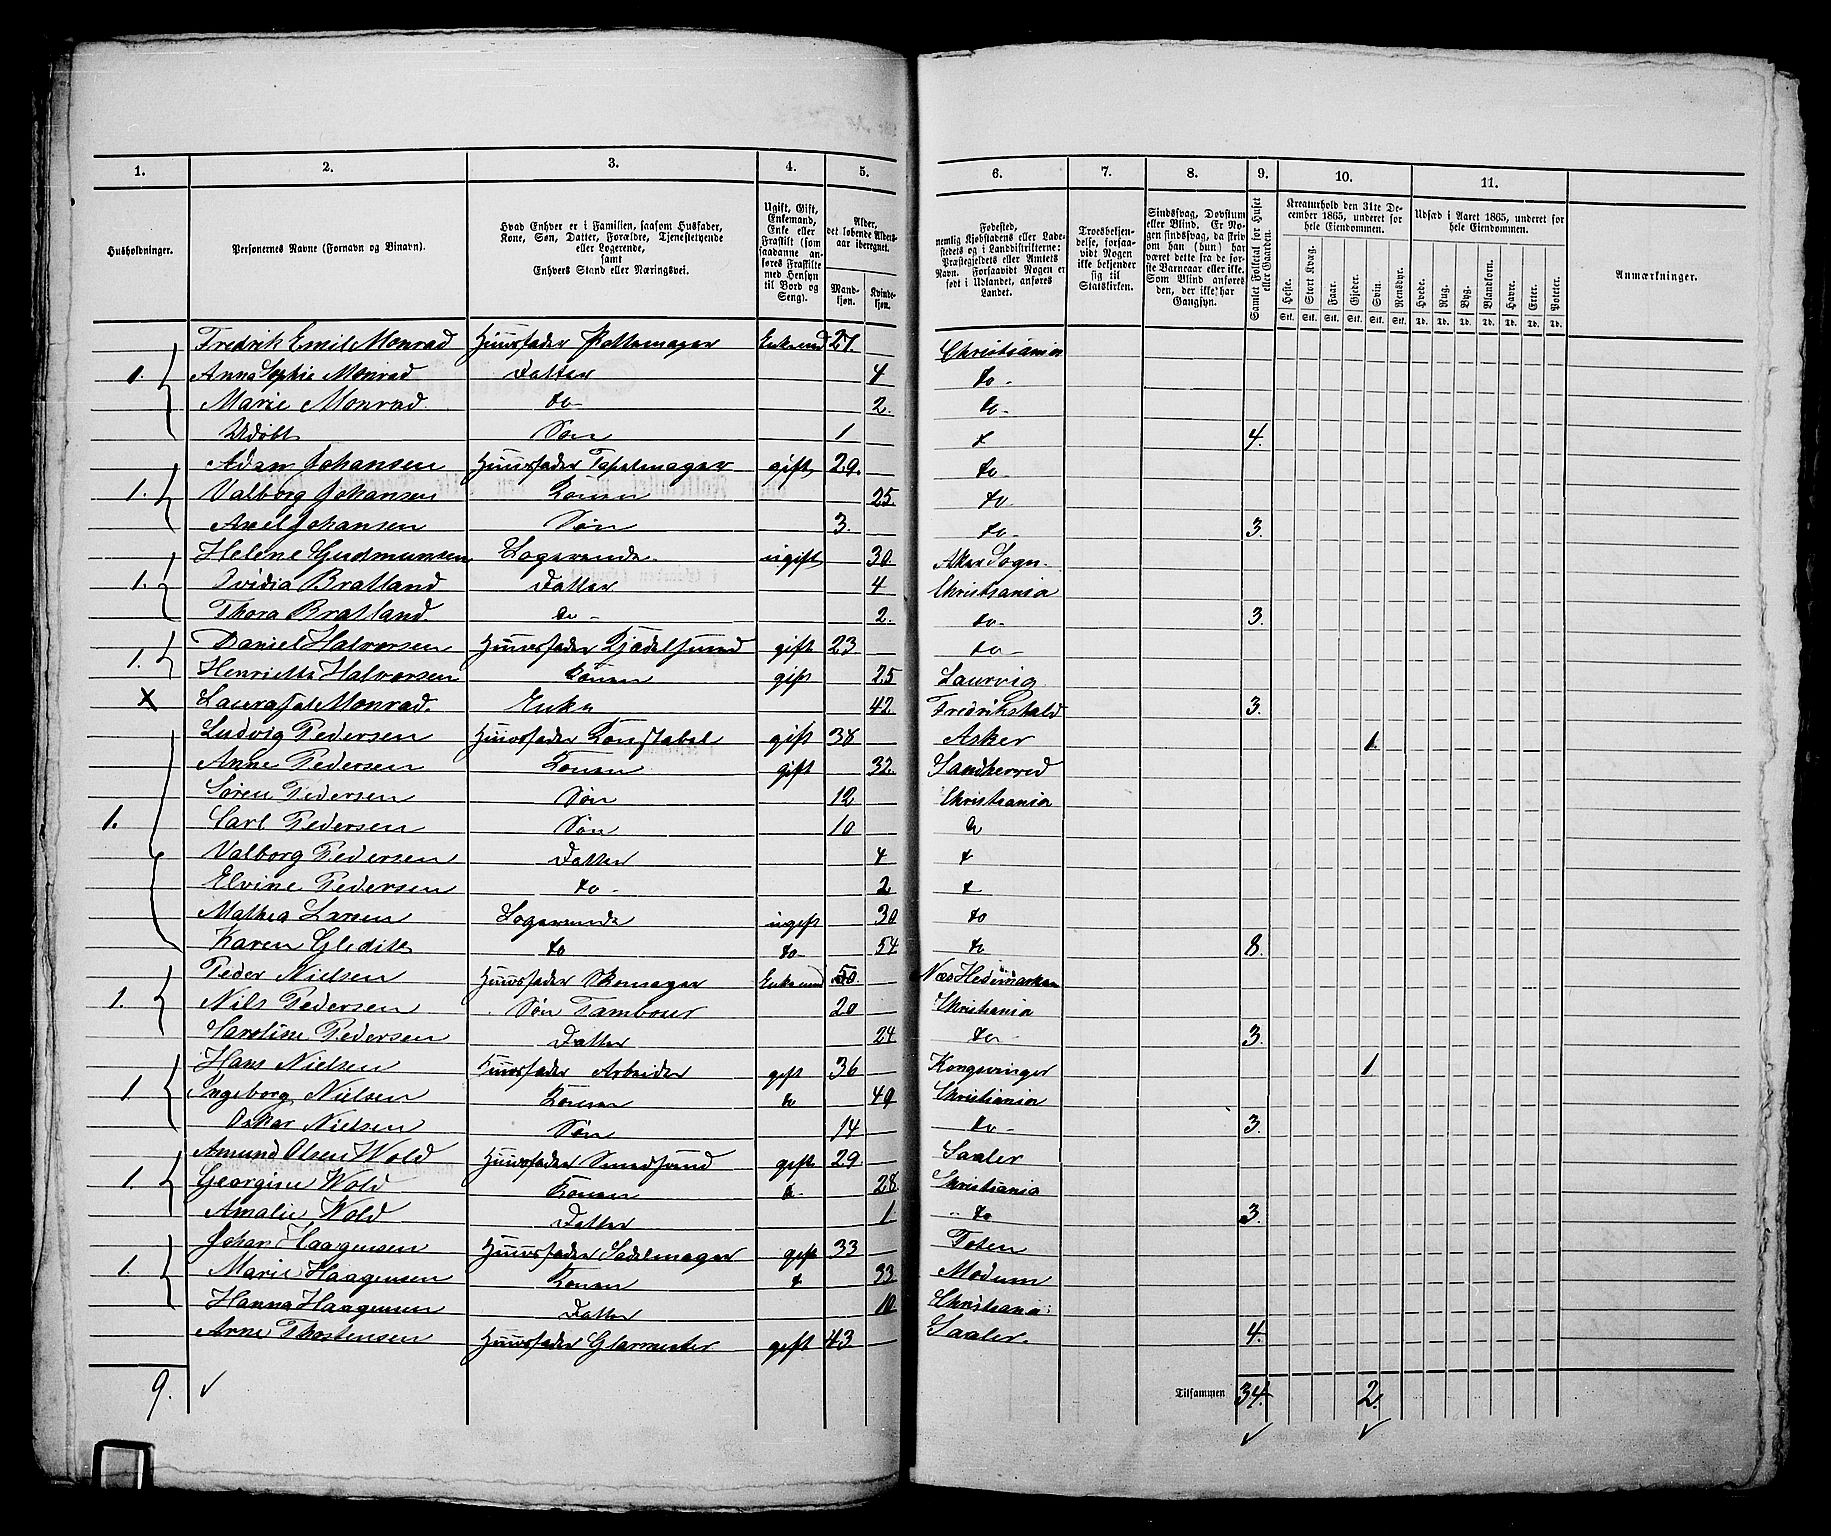 1. 2. 3. 4. 5. 6. 7. 8. 9. 10. 11.
Husholdninger.
Personernes Navne (Fornavn og Binavn).
Hvad Enhver er i Familien, saasom Husfader,
Kone, Søn, Datter, Forældre, Tjenestetyende
eller Logerende,
samt
Enhvers Stand eller Næringsvei.
Ugift, Gift,
Enkemand,
Enke eller
Fraskilt (som
saadanne an-
føres Fraskilte
med Hensyn
til Bord og
Seng).
Alder,
det løbende Alders-
aar iberegnet.
Mand-
kjøn.
Kvinde-
kjøn.
Fødested,
nemlig Kjøbstadens eller Lade-
stedets og i Landdistrikterne:
Præstegjeldets eller Amtets
Navn. Forsaavidt Nogen er
født i Udlandet, anføres
Landet.
Troesbekjen-
delse, forsaa-
vidt Nogen
ikke bekjender
sig til
Statskirken.
Sindssvag, Døvstum
eller Blind. Er No-
gen sindssvag, da skriv
om han (hun) har
været dette fra de før-
ste Barneaar eller ikke.
Som Blind anføres
den, der ikke har
Gangsyn.
Samlet Folketal for Huset
eller Gaarden.
Kreaturhold den 31te De-
cember 1865, underet for
hele Eiendommen.
Heste. Stort Kvæg. Faar. Gjeder. Svin. Rensdyr.
Stk. Stk. Stk. Stk. Stk. Stk.
Udsæd i Aaret 1865, underet for
hele Eiendommen.
Hvede. Rug. Byg. Blandkorn. Havre. Erter. Poteter.
Td. Td. Td. Td. Td. Td. Td.
Anmærkninger.
Fredrik Emil Monrad Huusfader Pottemager Enkemd 27. Christiania
1. Anna Sophie Monrad Datter 4 do-
Marie Monrad. do- 2. do-
Udøbt Søn 1 4.
Adam Johansen Huusfader Tapetmager gift 29. do-
1. Valborg Johansen Konen 25 do-
Axel Johansen Søn 3. do- 3.
Helene Gudmunsen Logerende ugift 30. Aker Sogn.
1. Ovidia Bratland Datter 4 Christiania
Thora Bratland do- 2. do- 3.
1. Daniel Halvorsen Huusfader gift 23 do-
Henriette Halvorsen Konen gift 25 Laurvig
x Laura Monrad. Enke 42. Fredrikstald 3.
Ludvig Pedersen Huusfader Konstabel gift 38 Asker 1.
Anne Pedersen Konen gift 32. Sandherred
Søren Pedersen Søn 12 Christiania
1. Carl Pedersen Søn 10
Valborg Pedersen Datter 4
Elvine Pedersen do- 2
Mathea Larsen Logerende ugift 30 do
Karen do do- 54 do 8.
Peder Nielsen Huusfader Skomager Enkemand 50. Næs Hedemarken
1. Nils Pedersen Søn Tambour 20 Christiania
Caroline Pedersen Datter 24 do- 3.
Hans Nielsen Huusfader Arbeider gift 36 Kongsvinger 1
1 Ingeborg Nielsen Konen do 49 Christiania
Oskar Nielsen Søn 14 do- 3.
Amund Olsen Wold Huusfader gift 29. Saaler
1. Georgine Wold Konen do- 28. Christiania
Amalie Wold Datter 1 do 3.
Johan Haagensen Huusfader Sadelmager gift 33 Toten
1. Marie Haagensen Konen 33 Modum
Hanna Haagensen Datter 10 Christiania
Arne Thostensen Huusfader Glarmester gift 43. Saaler. 4.
9. ✓ Tilsammen 34. 2.
✓ ✓